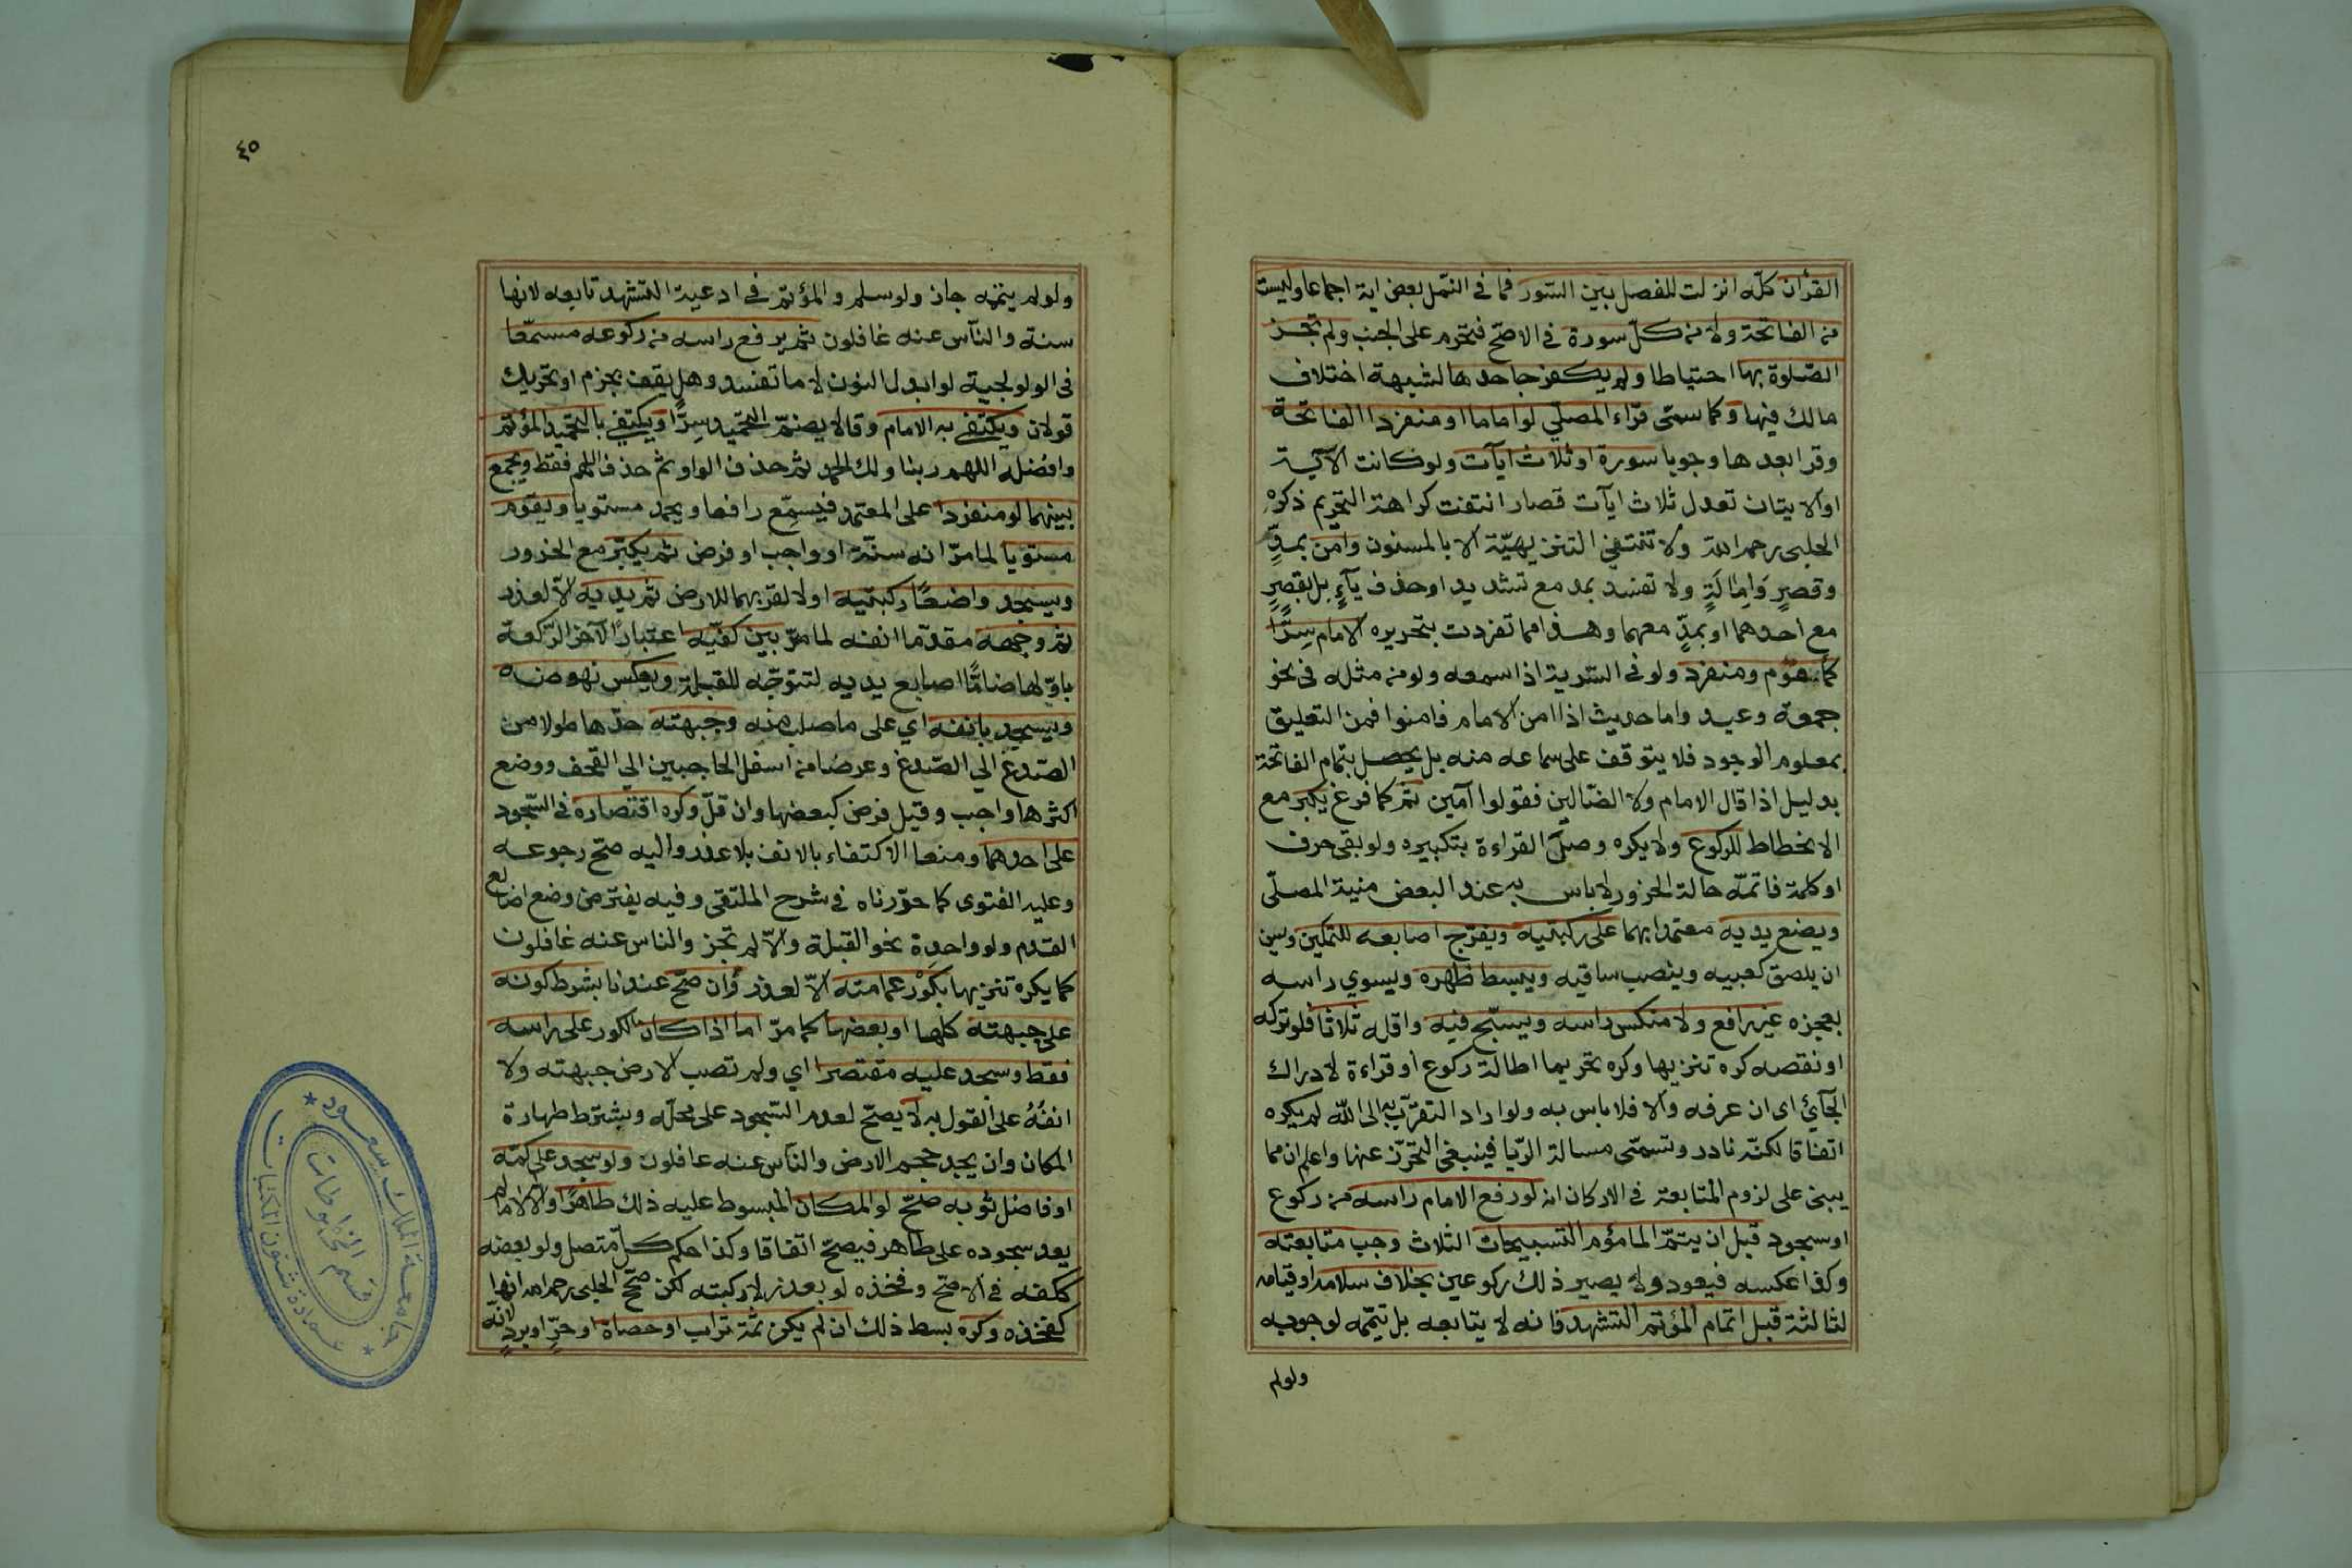 القرأن كلّه انزلت للفصل بين السّور فما في النّمل بعض اية اجماعا وليست
من الفاتحة ولا من كلّ سورة في الاصّح فتحرم على الجنب ولم تجز
الصّلوة بها احتياطا ولم يكفر جاحدها لشبهة اختلاف
مالك فيها وكما سمّى قراء المصلّي لو اماما او منفردا الفاتحة
وقرا بعدها وجوبا سورة او ثلاث ايآت ولو كانت الآية
او الايتان تعدل ثلاث ايآت قصار انتفت كراهة التحريم ذكره
الحلبى رحمه الله ولا تنتفي التنزيهيّة الا بالمسنون وامن بمدٍّ
وقصرٍ وَامِالَةٍ ولا تفسد بمد مع تشديد او حذف يآءٍ بل بقصرٍ
مع احدهما او بمدٍّ معهما وهذا مما تفردت بتحريره الامام سِرًّا
كمأموم ومنفرد ولو في السّرية اذا سمعه ولو من مثله في نحو
جمعة وعيد واما حديث اذا امن الامام فامنوا فمن التعليق
بمعلوم الوجود فلا يتوقف على سماعه منه بل يحصل بتمام الفاتحة
بدليل اذا قال الامام ولا الضّالين فقولوا آمين ثمّ كما فرغ يكبر مع
الانحطاط للركوع ولا يكره وصل القراءة بتكبيره ولو بقى حرف
او كلمة فاتمّه حالة الخرور لا باس به عند البعض منية المصلّى
ويضع يديه معتمدا بهما على ركبتيه ويفرّج اصابعه للتمكين وسن
ان يلصق كعبيه وينصب ساقيه ويبسط ظهره ويسوي راسه
بعجزه غير رافع ولا منكس راسه ويسبّح فيه واقله ثلاثا فلو تركه
او نقصه كره تنزيها وكره تحريما اطالة ركوع او قراءة لادراك
الجآئ اى ان عرفه والا فلا باس به ولو اراد التقرّب به الى الله لم يكره
اتفاقا لكنّه نادر وتسمّى مسالة الرّيا فينبغى التحرّز عنها واعلم ان مما
يبنى على لزوم المتابعة في الاركان انه لو رفع الامام راسه من ركوع
او سجود قبل ان يتمّ المأموم التسبيحات الثلاث وجب متابعته
وكذا عكسه فيعود ولا يصير ذلك ركوعين بخلاف سلامه او قيامه
لثالثة قبل اتمام المؤتم التشهد فانه لا يتابعه بل يتمّه لوجوبه
ولولم
٤٥
ولو لم يتمه جاز ولو سلم والمؤتمّ في ادعية التشهد تابعه لانها
سنة والنآس عنه غافلون ثم يرفع راسه من ركوعه مسمّعا
في الولوالجية لو ابدل النون لاما تفسد وهل يقف بجزم او تحريك
قولان ويكتفي به الامام وقالا يضمّ التحميد سِرًّا ويكتفي بالتحميد المؤتمّ
وافضله اللهم ربنا ولك الحمد ثم حذف الواو ثم حذف اللهم فقط ويجمع
بينهما لو منفردا على المعتمد فيسمِّع رافعا ويحمد مستويا ويقوم
مستويا لما مرّ انه سنّة او واجب او فرض ثم يكبّر مع الخرور
ويسجد واضعًا ركبتيه اولا لقربهما للارض ثم يديه الّا لعذر
ثم وجهه مقدّما انفه لما مرّ بين كفيّه اعتبارًا لآخر الرّكعة
باوّلها ضامًّا اصابع يديه لتتوجّه للقبلة ويعكس نهوضه
ويسجد بانفه اي على ما صلب منه وجبهته حدّها طولا من
الصّدغ الي الصّدغ وعرضا من اسفل الحاجبين الي القحف ووضع
اكثرها واجب وقيل فرض كبعضها وان قلّ وكره اقتصاره في السّجود
على احدهما ومنعا الاكتفاء بالانف بلا عذر واليه صحّ رجوعه
وعليه الفتوى كما حرّرناه في شرح الملتقى وفيه يفترض وضع اصابع
القدم ولو واحدة نحو القبلة والّا لم تجز والناس عنه غافلون
كما يكره تنزيها بكَوْر عمامته الّا لعذر وان صحّ عندنا بشرط كونه
على جبهته كلها او بعضها كما مرّ اما اذا كان الكور على راسه
فقط وسجد عليه مقتصرا اي ولم تصب الارض جبهته ولا
انفُهُ على القول به لا يصحّ لعدم السّجود على محلّه وبشترط طهارة
المكان وان يجد حجم الارض والنآس عنه غافلون ولو سجد على كمّه
او فاضل ثوبه صحّ لو المكان المبسوط عليه ذلك طاهرًا والّا لا ما لم
يعد سجوده على طاهر فيصحّ اتفاقا وكذا حكم كلّ متصل ولو بعضه
ككفه في الاصّح وفخذه لو بعذر لا ركبته لكن صحّح الحلبى رحمه الله انها
كفخذه وكره بسط ذلك ان لم يكن ثمّة تراب او حصاة او حرٍّ او بردٍ لانّه
جامعة الملك سعود
عمادة شئون المكتبات
قسم المخطوطات